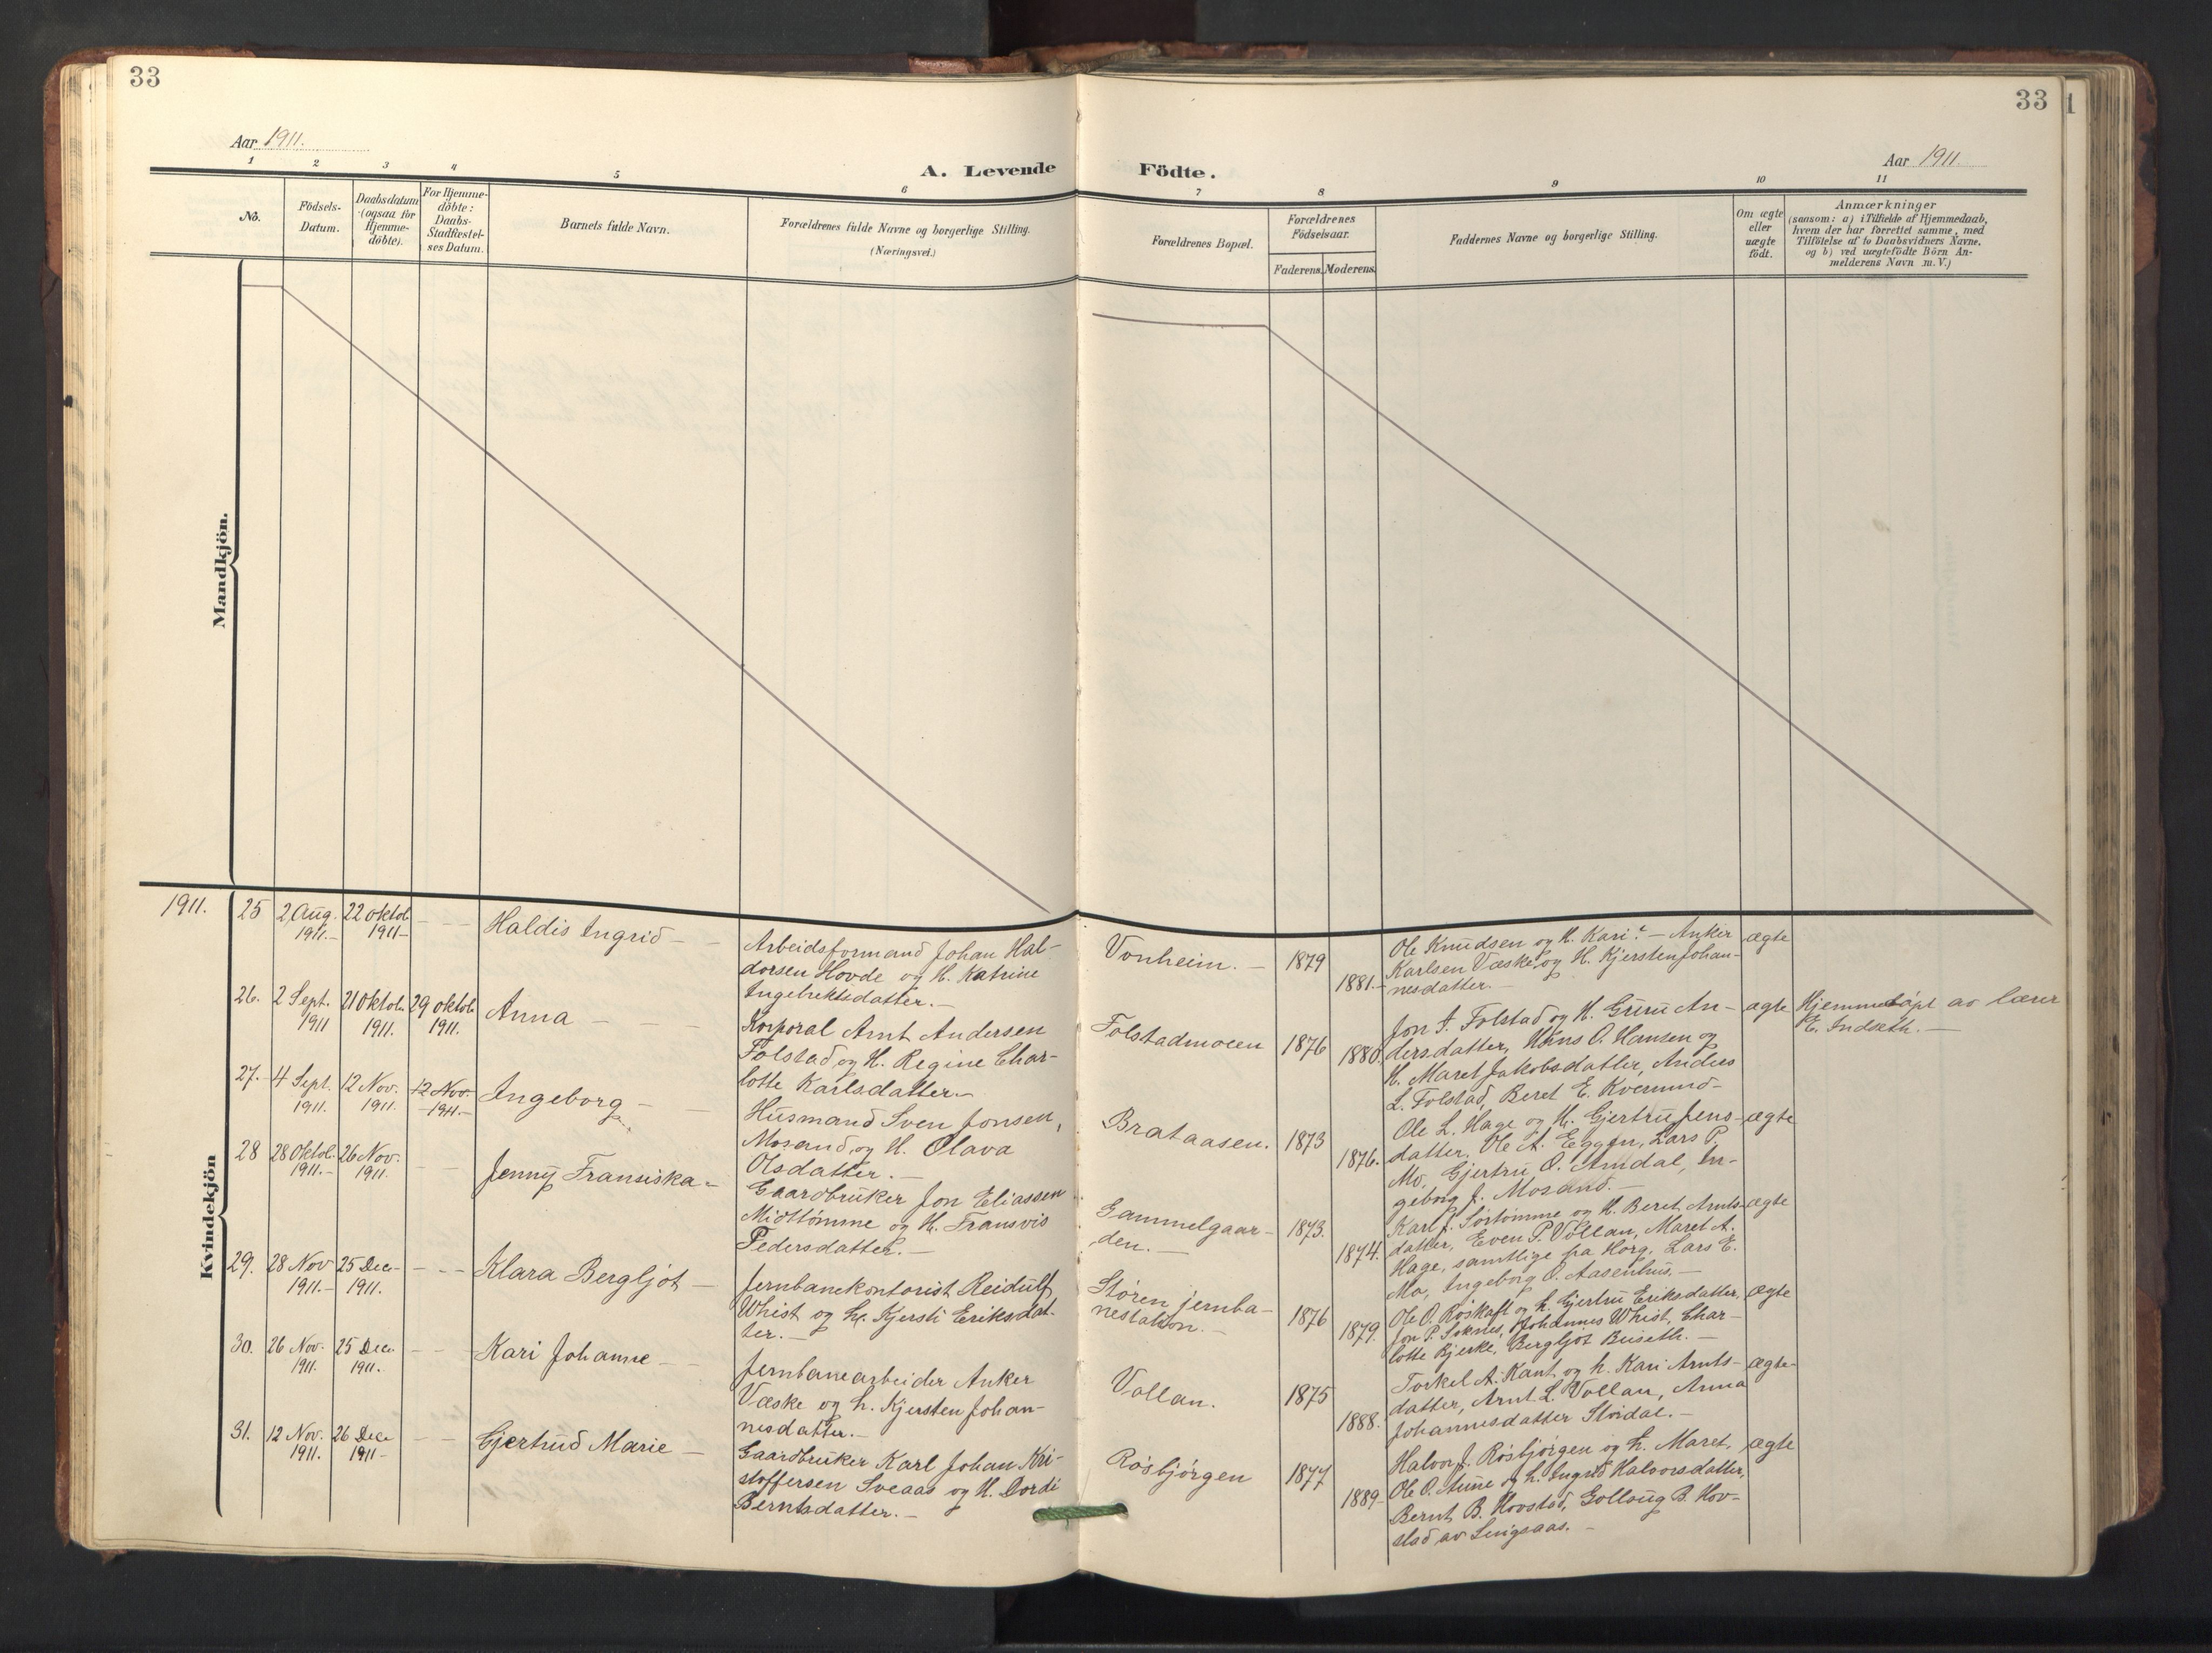 33
33
1
Aar 1911.
Aar 1911
A. Levende
Födte.
1
2
3
4
5
6
7
8
9
10
11
No.
Födsels-
Datum.
Daabsdatum
(ogsaa for
Hjemme-
döbte).
For Hjemme-
döbte:
Daabs-
Stadfæstel-
ses Datum.
Barnets fulde Navn.
Forældrenes fulde Navne og borgerlige Stilling.
(Næringsvei.)
Forældrenes Bopæl.
Forældrenes
Födselsaar.
Faderens.
Moderens.
Faddernes Navne og borgerlige Stilling.
Om ægte
eller
uægte
födt.
Anmærkninger
(saasom: a) i Tilfælde af Hjemmedaab,
hvem der har forrettet samme, med
Tilföielse af to Daabsvidners Navne,
og b) ved uægtefödte Börn An-
melderens Navn m. V.)
Mandkjön.
Kvindekjön
1911.
25
2 Aug.
1911.-
22 oktob
1911-
- -
Haldis Ingrid - -
Arbeidsformand Johan Hal-
dorsen Hovde og H. Katrine
Ingebrektsdatter. -
Vonheim. -
1879
1881.-
Ole Knudsen og H. Kari? - Anker
Karlsen Væske og H. Kjersten Johan-
nesdatter. -
ægte
26.
2 Sept.
1911
21 Oktob.
1911.
29 oktob
1911.
Anna - - -
Korporal Arnt Andersen
Folstad og H. Regine Char-
lotte Karlsdatter. -
Folstadmoen
1876
1880.
Jon A. Folstad og H. Guru An-
dersdatter, Hans O. Hansen og
H. Maret Jakobsdatter, Anders
L. Folstad, Beret E. Kvernmo-
ægte
Hjemmedöpt av lærer
E. Indseth. -
27.
4 Sept.
1911.
12 Nov.
1911.
12 Nov.
1911.
Ingeborg - -
Husmand Sven Jonsen,
Mosand og H. Olava
Olsdatter. -
Brataasen.
1873
1876.
Ole L. Hage og H. Gjertru Jens-
datter, Ole A. Eggen, Lars P.
Mo, Gjertru O. Amdal, In-
geborg J. Mosand. -
ægte
28
28 Oktob.
1911.-
26 Nov.
1911.
- -
Jenny Fransiska -
Gaardbruker Jon Eliassen
Midttömme og H. Fransvis
Pedersdatter. -
Gammelgaar-
den. -
1873.
1874.
Karl J. Sörtömme og H. Beret Arnts-
datter, Even P. Vollan, Maret A.
Hage, samtlige fra Horg, Lars E.
Mo, Ingeborg O. Aasenhus. -
ægte
29.
28 Nov
1911.-
25 Dec-
1911.
- - -
Klara Bergljot -
Jernbanekontorist Reidulf
Whist og H. Kjersti Eriksdat-
ter. -
Stören jernba-
nestation. -
1876
1879.
Ole O. Roskaft og h. Gjertru Eriksdatter,
Jon P. Soknes, Johannes Whist, Char-
lotte Bjerke, Bergljot Buseth. -
ægte
30.
26 Nov.
1911.
25 Dec
1911.
- - -
Kari Johanne - -
Jernbanearbeider Anker
Væske og h. Kjersten Johan-
nesdatter. -
Vollan.
1875
1888.
Torkel A. Kant og h. Kari Arnts-
datter, Arnt L. Vollan, Anna
Johannesdatter Stördal. -
ægte-
31.
12 Nov.
1911.
26 Dec
1911-
- -
Gjertrud Marie -
Gaardbruker Karl Johan Kri-
stoffersen Sveaas og H. Dordi
Berntsdatter. -
Rösbjörgen
1877
1889-
Halvor J. Rösbjörgen og h. Maret,
Ole O. Aune og h. Ingrid Halvorsdatter,
Bernt B. Hovstad, Gollaug B. Hov-
stad av Singsaas. -
ægte